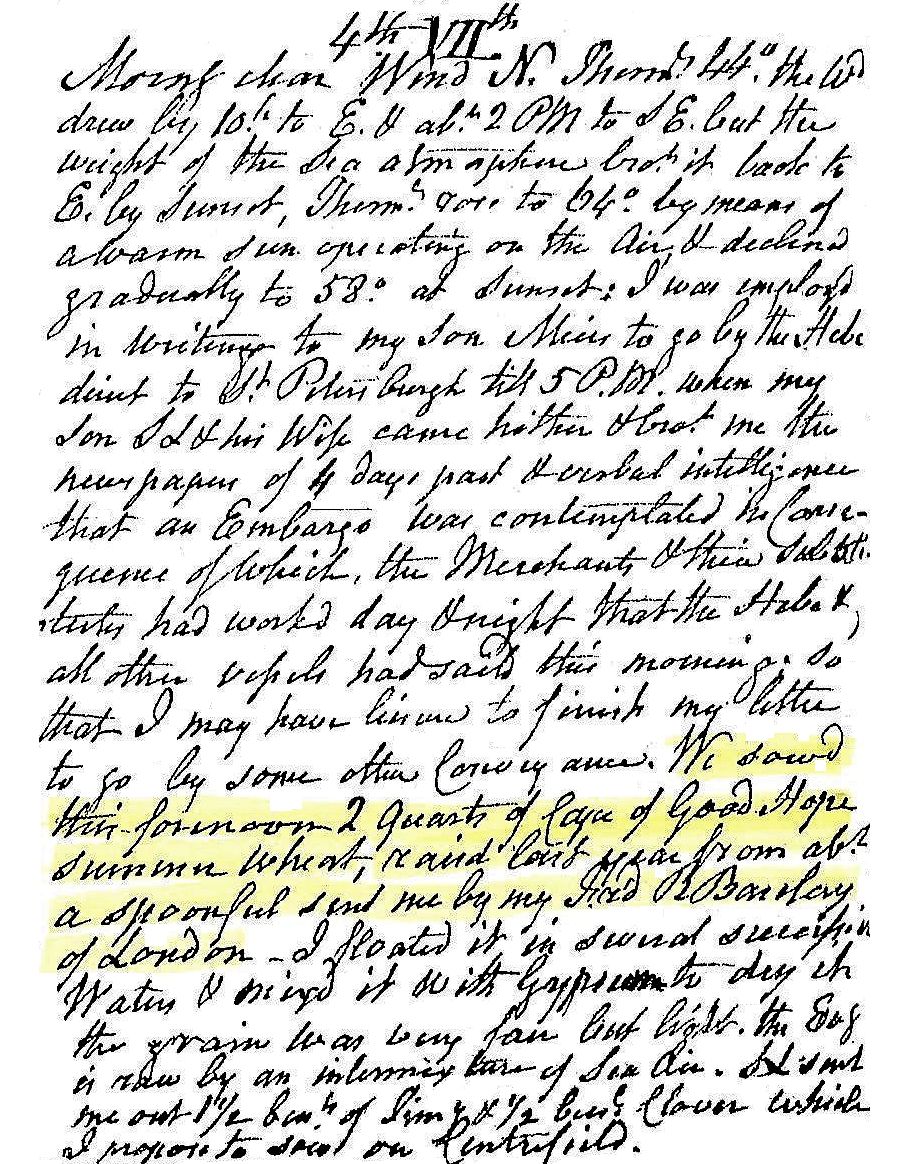 4th VIIth
Morng clear Wind N. Thermr 44°. the Wd
drew by 10h to E. & abt 2 PM to S E. but the
weight of the Sea atmosphere brot it back to
E. by Sunset, Thermr rose to 64° by means of
a warm sun operating on the Air, & declined
gradually to 58° at Sunset: I was employd
in writing to my Son Miers to go by the Hebe
direct to St Petersburgh till 5 P.M. when my
Son S L & his Wife came hither & brot me the
newspapers of 4 days past & verbal intelligence
that an Embargo was contemplated in Conse-
quence of which, the Merchants & their Substi-
tutes had workd day & night that the Hebe &
all other vessels had saild this morning. so
that I may have lisure to finish my letter
to go by some other Conveyance. We sowd
this forenoon 2 Quarts of Cape of Good Hope
summer Wheat, raisd last year from abt
a spoonful sent me by my Frd R Barclay
of London - I floated it in several succession
Waters & mixd it with Gypsum to dry it
the grain was very fair but light. the Evg
is raw by an intermixture of Sea Air. S L sent
me out 1 1/2 bush of Timy & 1/2 bush Clover which
I propose to sow on Centrefield.